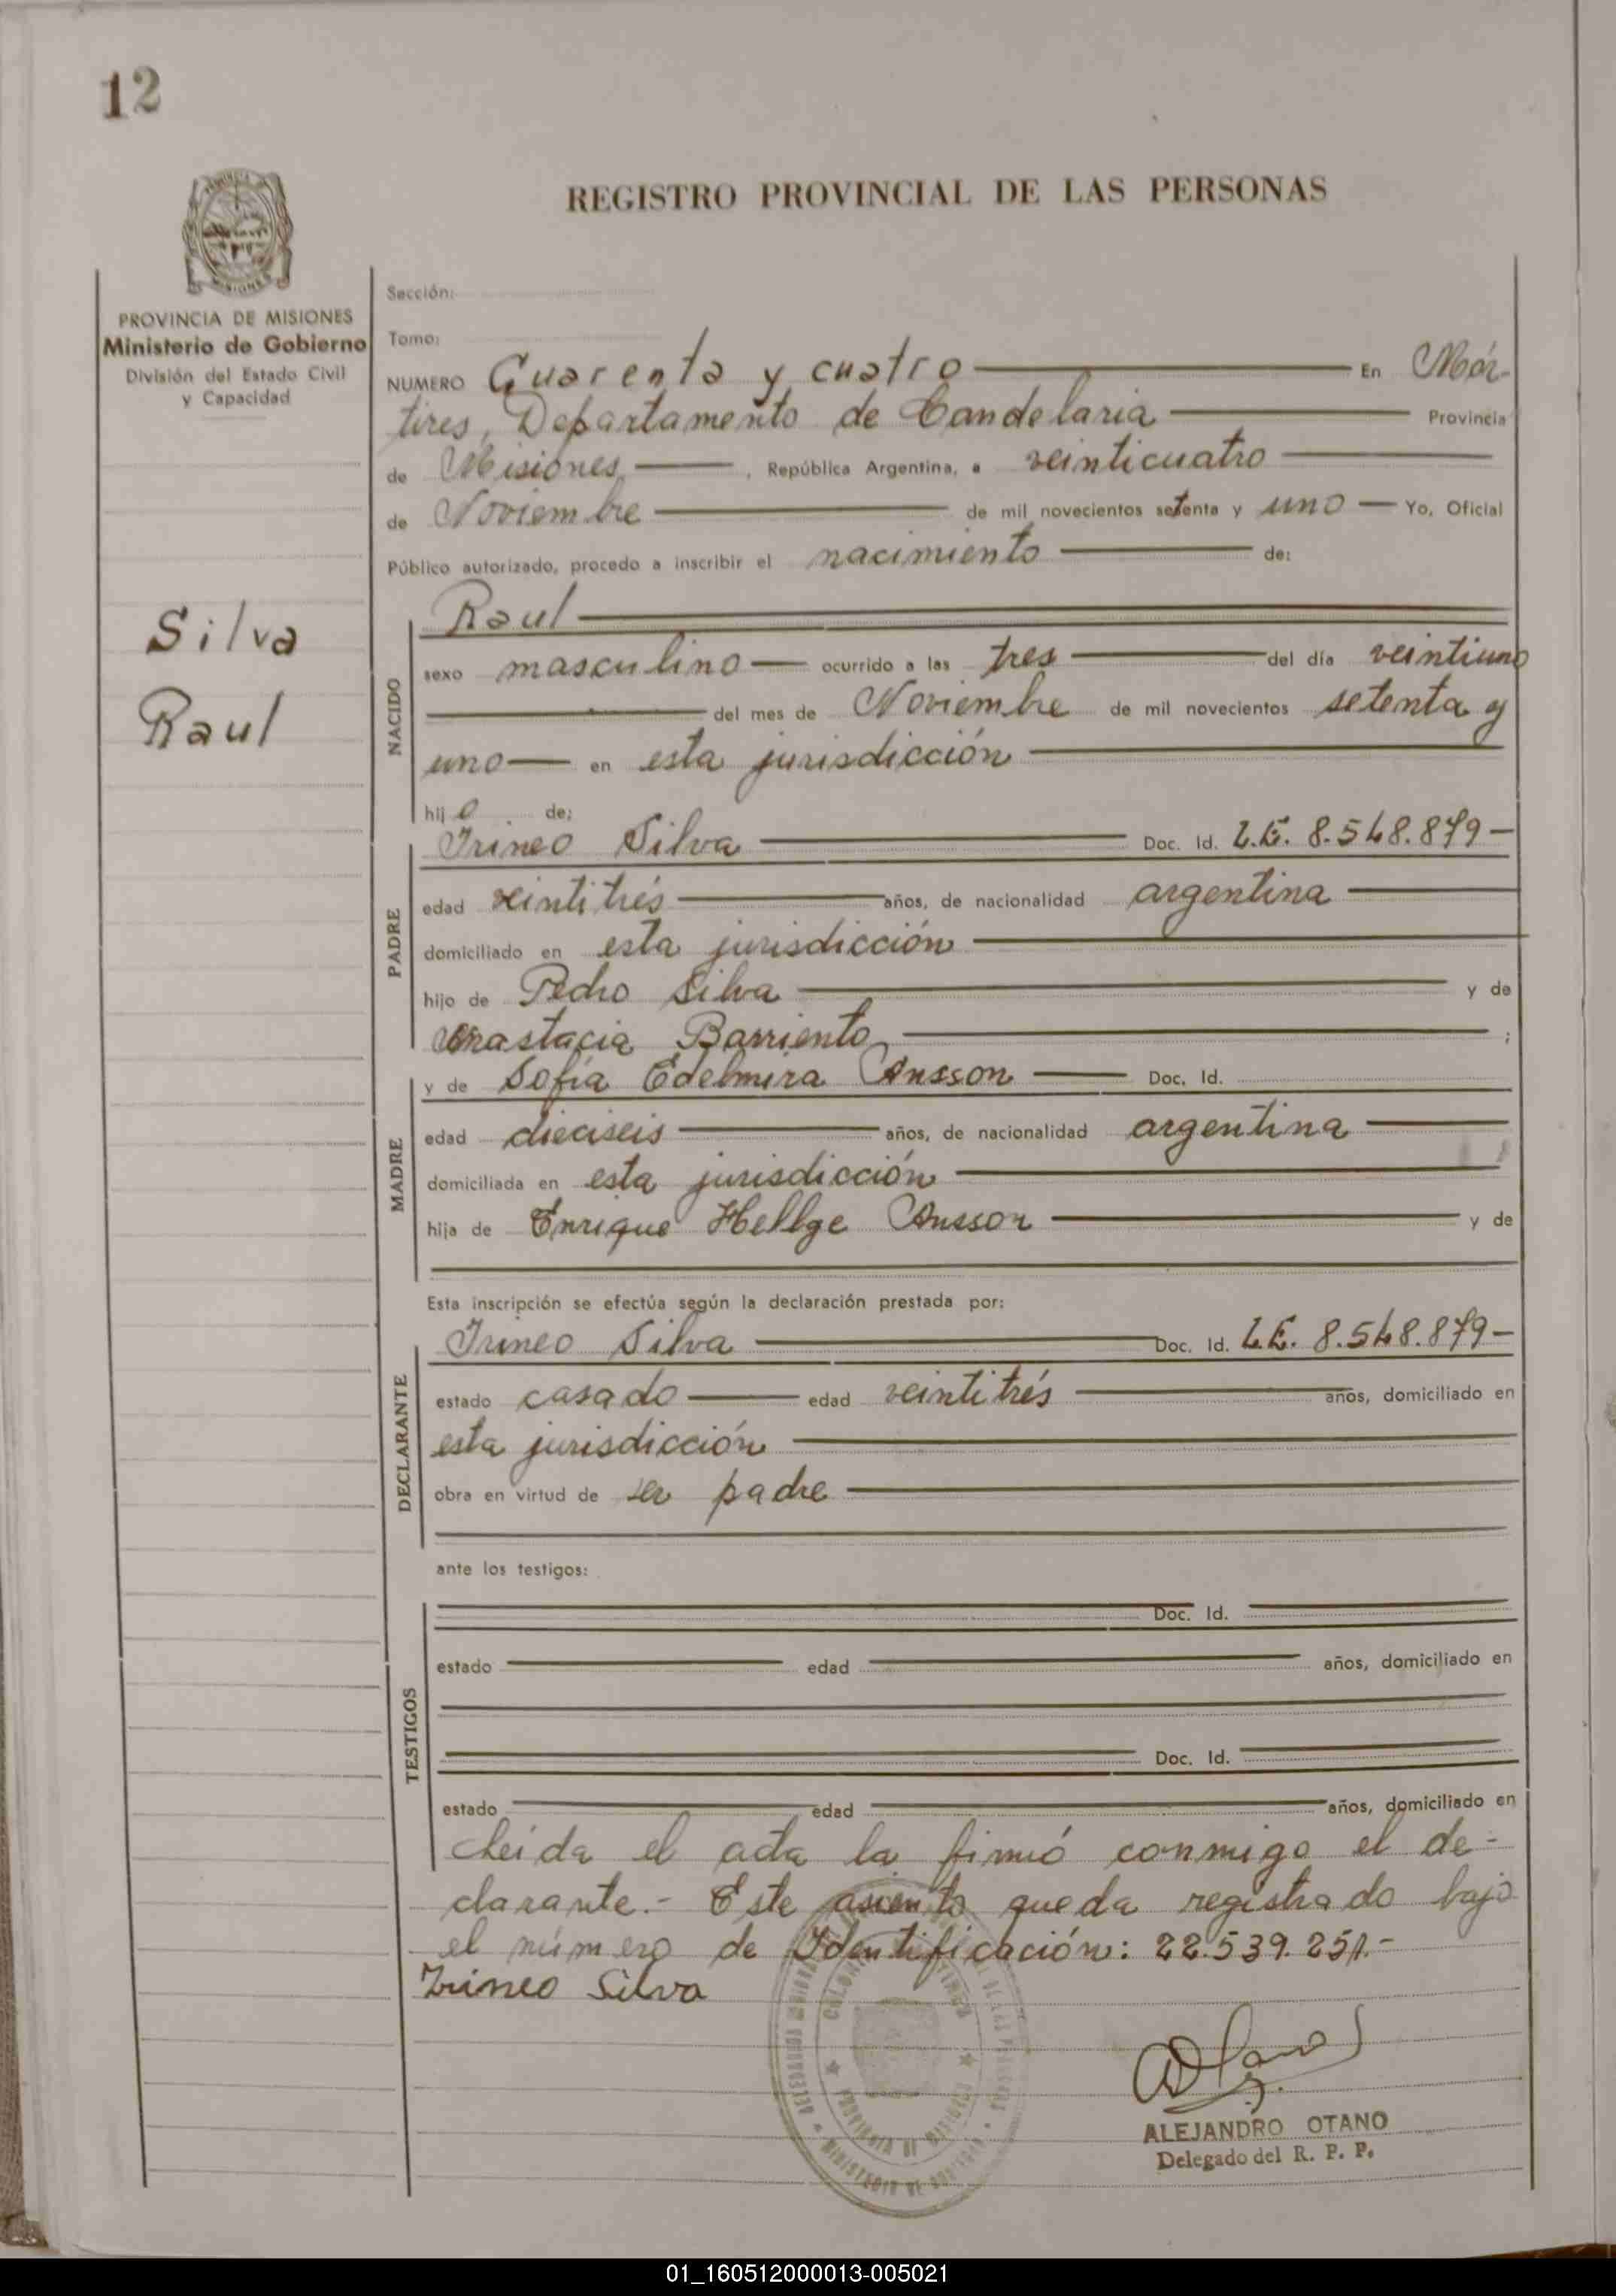 12
REGISTRO PROVINCIAL DE LAS PERSONAS
PROVINCIA DE MISIONES
Ministerio de Gobierno
División del Estado Civil
y Capacidad
Silva
Raul
Sección:
Tomo:
NUMERO Cuarenta y cuatro En Már-
tires, Departamento de Candelaria Provincia
de Misiones, República Argentina, a veinticuatro
de Noviembre de mil novecientos setenta y uno Yo, Oficial
Público autorizado, procedo a inscribir el nacimiento de:
NACIDO
Raul
sexo masculino ocurrido a las tres del día veintiuno
del mes de Noviembre de mil novecientos setenta y
uno en esta jurisdicción
hijo de:
PADRE
Irineo Silva Doc. Id. L.E. 8.548.879-
edad veintitrés años, de nacionalidad argentina
domiciliado en esta jurisdicción
hijo de Pedro Silva y de
Anastacia Barriento ;
MADRE
y de Sofía Edelmira Ansson Doc. Id.
edad dieciseis años, de nacionalidad argentina
domiciliada en esta jurisdicción
hija de Enrique Hellge Ansson y de
Esta inscripción se efectúa según la declaración prestada por:
DECLARANTE
Irineo Silva Doc. Id. L.E. 8.548.879-
estado casado edad veintitrés años, domiciliado en
esta jurisdicción
obra en virtud de ser padre
ante los testigos:
TESTIGOS
Doc. Id.
estado edad años, domiciliado en
Doc. Id.
estado edad años, domiciliado en
Leída el acta la firmó conmigo el de-
clarante.- Este asiento queda registrado bajo
el número de Identificación: 22.539.251.-
Irineo Silva
PROVINCIA DE MISIONES
ALEJANDRO OTANO
Delegado del R. P. P.
01_160512000013-005021